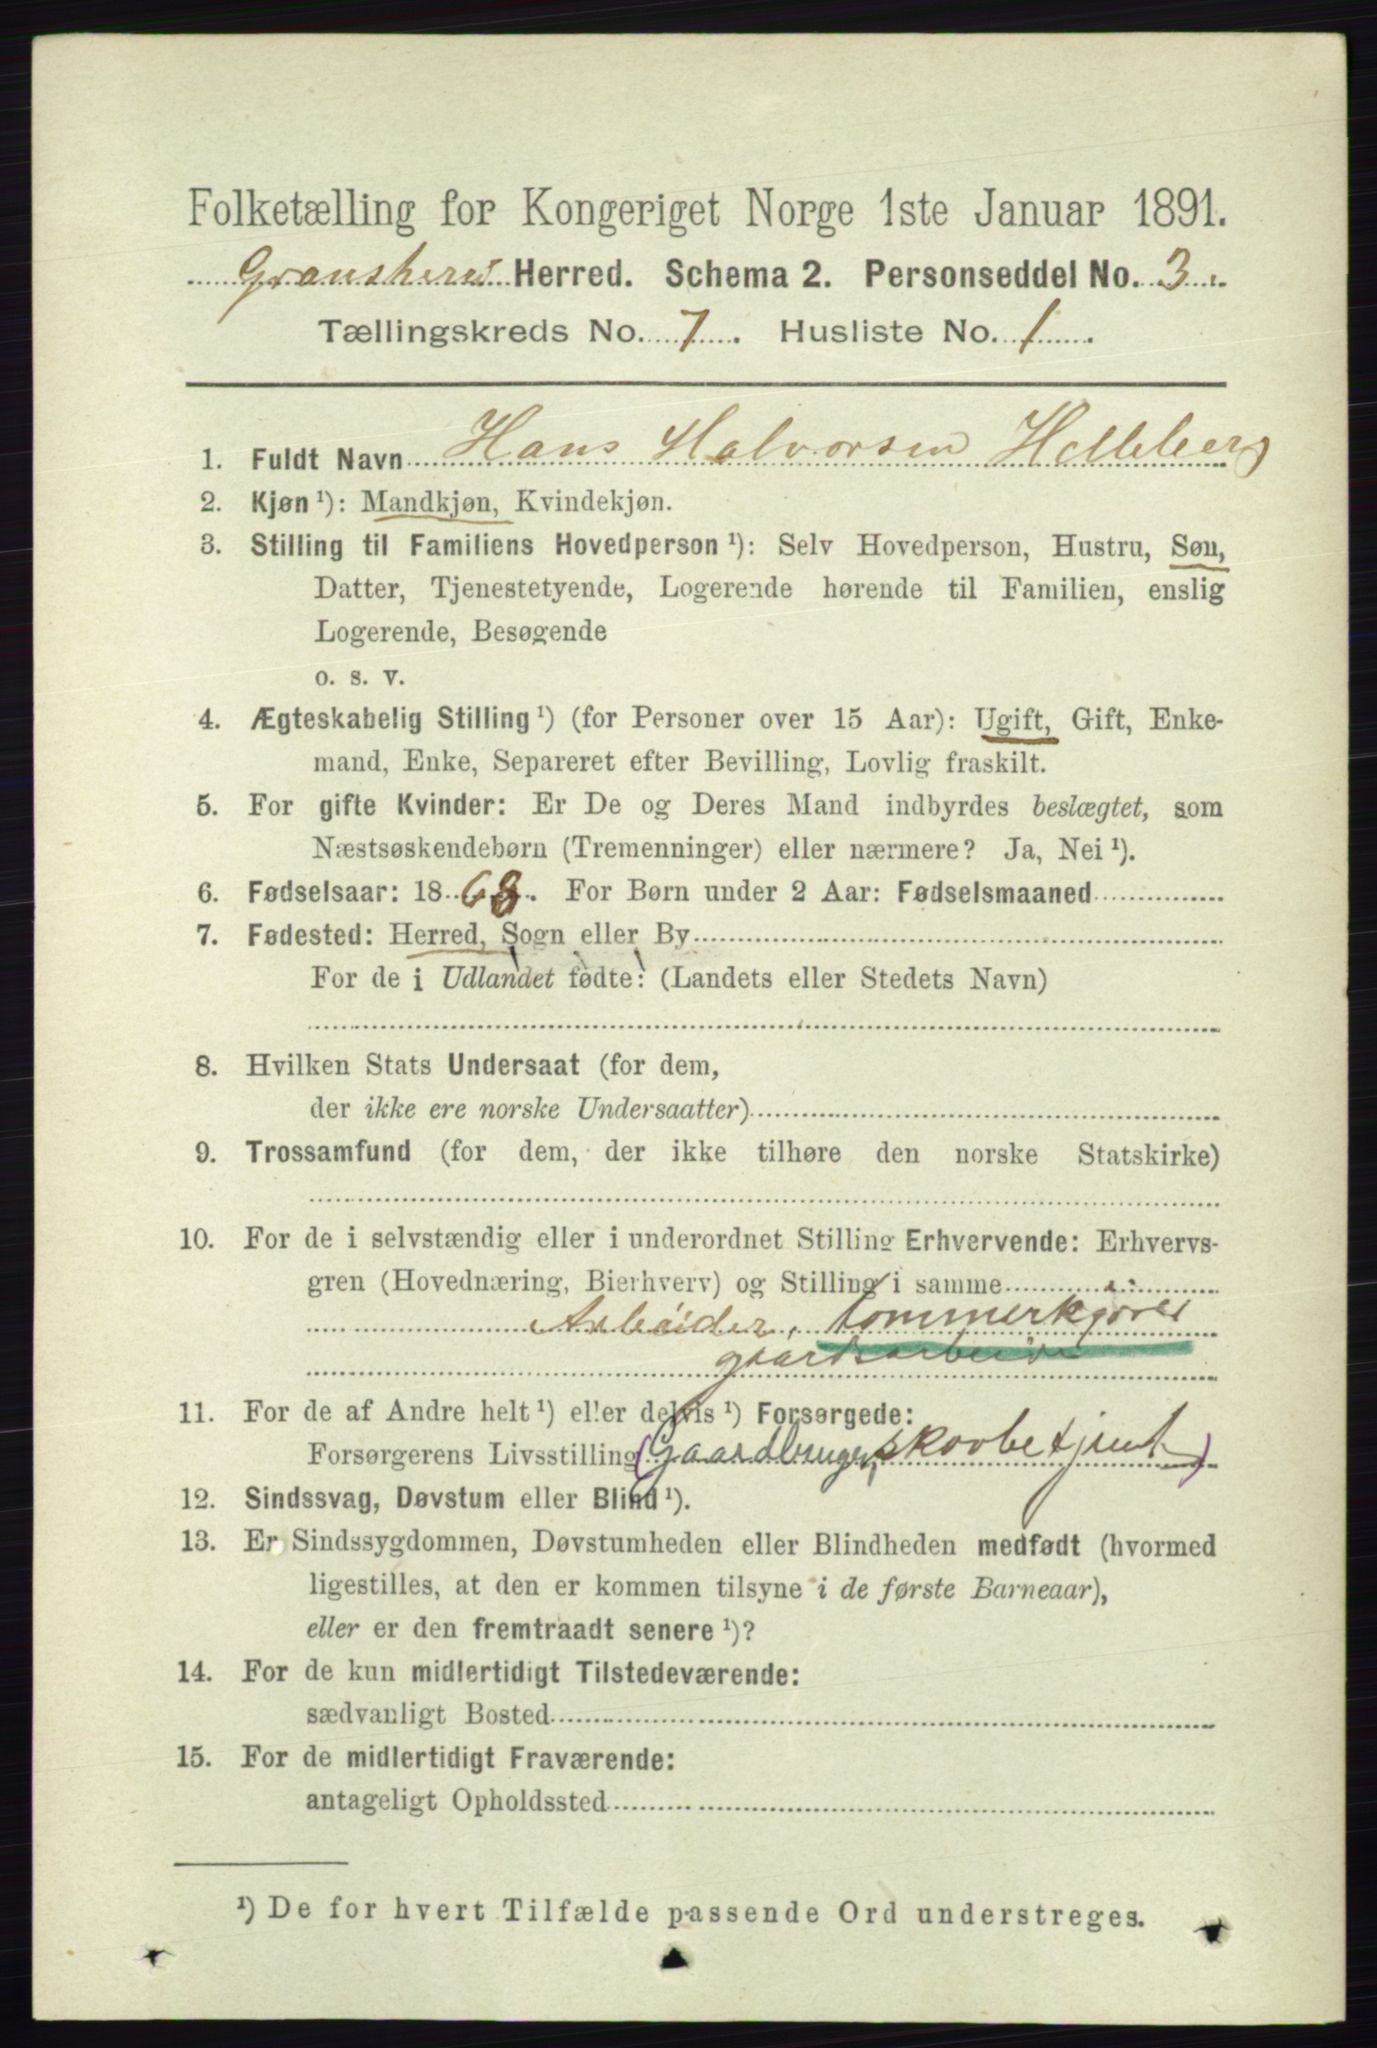 Folketælling for Kongeriget Norge 1ste Januar 1891.
Gransherad Herred. Schema 2. Personseddel No. 3.
Tællingskreds No. 7. Husliste No. 1.
1. Fuldt Navn Hans Halvorsen Helleberg
2. Kjøn ¹): Mandkjøn, Kvindekjøn.
3. Stilling til Familiens Hovedperson ¹): Selv Hovedperson, Hustru, Søn,
Datter, Tjenestetyende, Logerende hørende til Familien, enslig
Logerende, Besøgende
o. s. v.
4. Ægteskabelig Stilling ¹) (for Personer over 15 Aar): Ugift, Gift, Enke-
mand, Enke, Separeret efter Bevilling, Lovlig fraskilt.
5. For gifte Kvinder: Er De og Deres Mand indbyrdes beslægtet, som
Næstsøskendebørn (Tremenninger) eller nærmere? Ja, Nei ¹).
6. Fødselsaar: 1868. For Børn under 2 Aar: Fødselsmaaned
7. Fødested: Herred, Sogn eller By
For de i Udlandet fødte: (Landets eller Stedets Navn)
8. Hvilken Stats Undersaat (for dem,
der ikke ere norske Undersaatter)
9. Trossamfund (for dem, der ikke tilhøre den norske Statskirke)
10. For de i selvstændig eller i underordnet Stilling Erhvervende: Erhvervs-
gren (Hovednæring, Bierhverv) og Stilling i samme
Arbeider, tommerkjører
gaardsarbeide
11. For de af Andre helt ¹) eller delvis ¹) Forsørgede:
Forsørgerens Livsstilling (Gaardbruger, skovbetjent)
12. Sindssvag, Døvstum eller Blind ¹).
13. Er Sindssygdommen, Døvstumheden eller Blindheden medfødt (hvormed
ligestilles, at den er kommen tilsyne i de første Barneaar),
eller er den fremtraadt senere ¹)?
14. For de kun midlertidigt Tilstedeværende:
sædvanligt Bosted
15. For de midlertidigt Fraværende:
antageligt Opholdssted
¹) De for hvert Tilfælde passende Ord understreges.